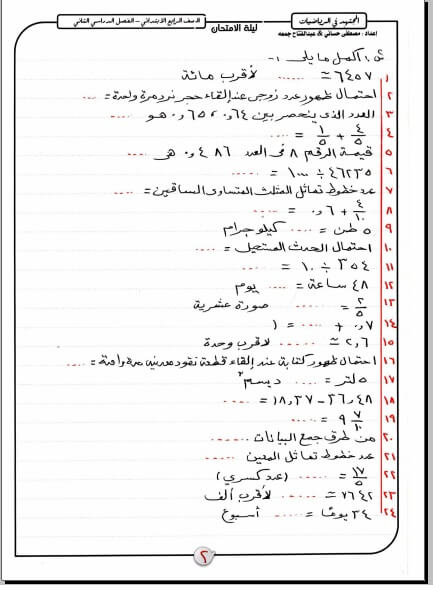 المجتهد في الرياضيات
الصف الرابع الابتدائي – الفصل الدراسي الثاني
ليلة الامتحان
إعداد : مصطفى حساني & عبدالفتاح جمعه
س١ أكمل ما يلى :-
١ ٦٤٥٧ ≃ ...... لأقرب مائة
٢ احتمال ظهور عدد زوجى عند إلقاء حجر نرد مرة واحدة = ....
٣ العدد الذى ينحصر بين ٠٫٦٤ ، ٠٫٦٥ هو ....
٤ ٤/٥ + ١/٥ = ....
٥ قيمة الرقم ٨ فى العدد ٠٫٤٨٦ هى ....
٦ ٤٦٢٣٥ ÷ ١٠٠٠ = ......
٧ عدد خطوط تماثل المثلث المتساوى الساقين = ....
٨ ٤/١٠ + ٠٫٦ = ......
٩ ٥ طن = ..... كيلوجرام
١٠ احتمال الحدث المستحيل = ....
١١ ٣٥٤ ÷ ١٠ = ......
١٢ ٤٨ ساعة = .... يوم
١٣ ٢/٥ = ...... صورة عشرية
١٤ ٠٫٧ + ..... = ١
١٥ ٢٫٦ ≃ ...... لاقرب وحدة
١٦ احتمال ظهور كتابة عند إلقاء قطعة نقود معدنية مرة واحدة = ....
١٧ ٥ لتر = ..... ديسم٣
١٨ ٣٦٫٤٨ – ١٨٫٢٧ = ......
١٩ ٩ ٧/١٠ = ......
٢٠ من طرق جمع البيانات ......
٢١ عدد خطوط تماثل المعين ......
٢٢ ١٧/٥ = ...... (عدد كسري)
٢٣ ٧٦٤٢ ≃ ...... لأقرب ألف
٢٤ ٣٤ يومًا = ...... أسبوع
٢